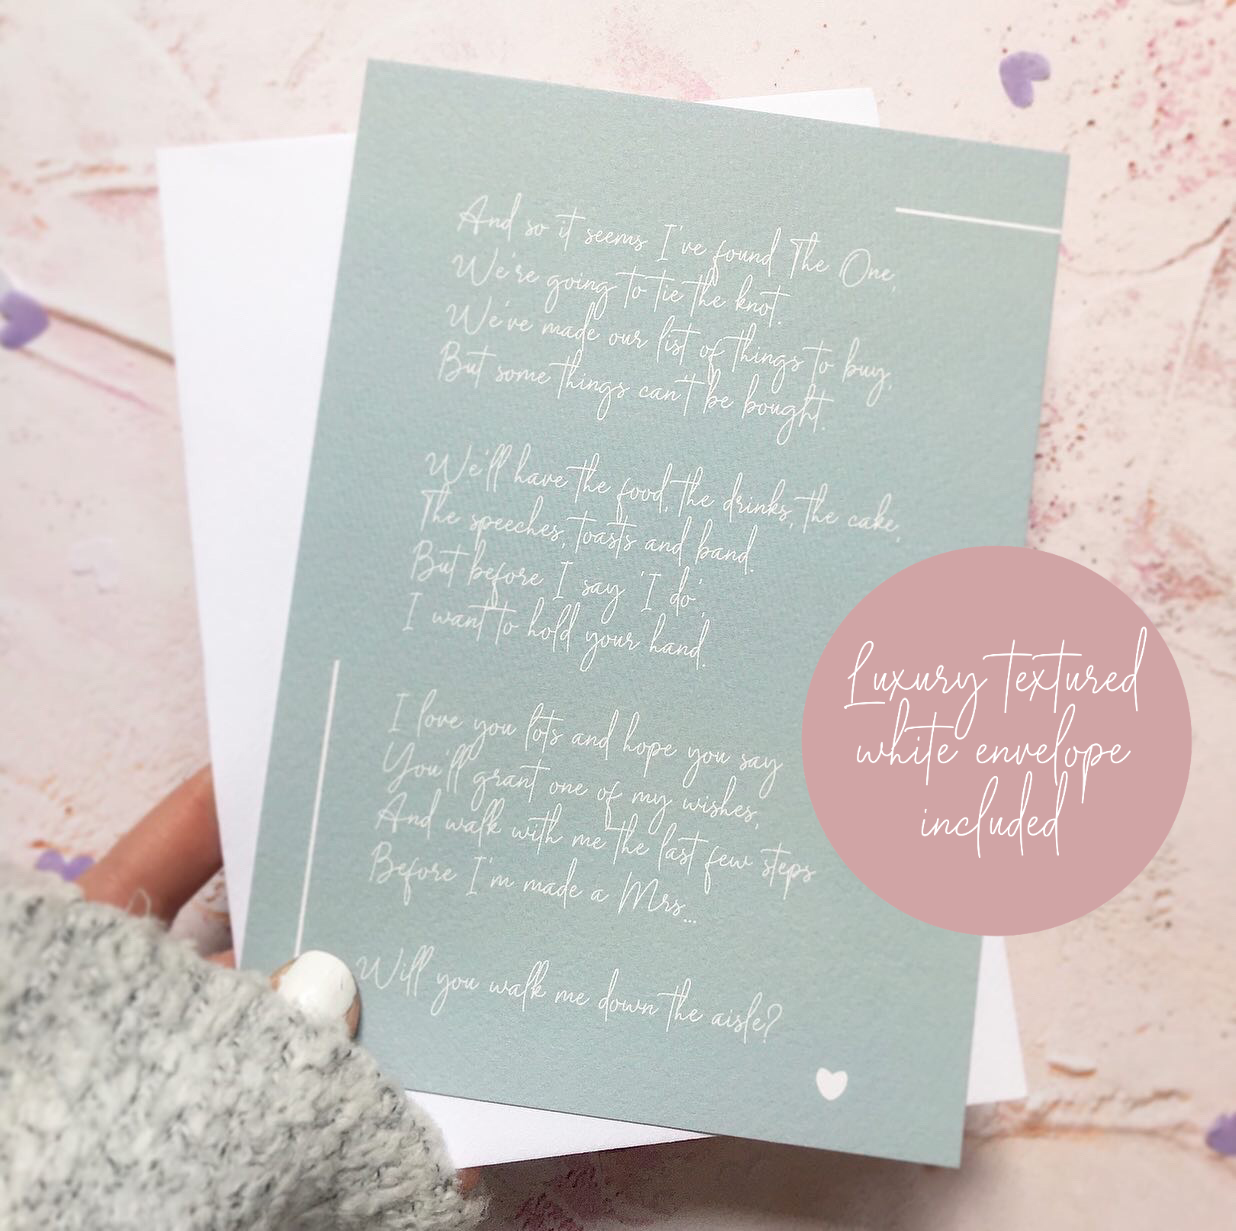 And so it seems I've found The One,
We're going to tie the knot.
We've made our list of things to buy,
But some things can't be bought.
We'll have the food, the drinks, the cake,
The speeches, toasts and band.
But before I say 'I do',
I want to hold your hand.
I love you lots and hope you say
You'll grant one of my wishes,
And walk with me the last few steps
Before I'm made a Mrs...
Will you walk me down the aisle?
Luxury textured
white envelope
included